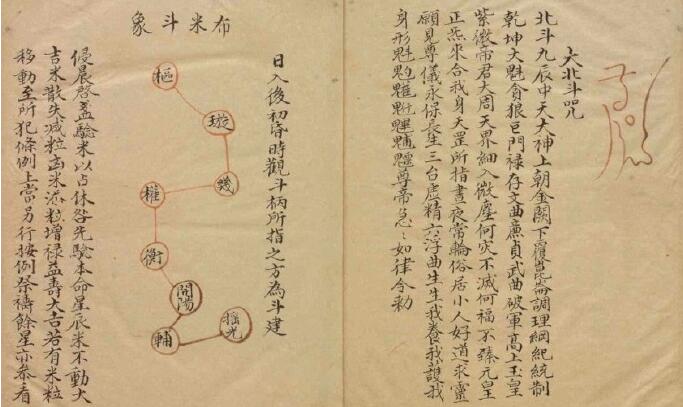 大北斗咒
北斗九辰中天大神上朝金闕下覆崑崙調理綱紀統制
乾坤大魁貪狼巨門禄存文曲廉貞武曲破軍髙上玉皇
紫微帝君大周天界細入微塵何灾不滅何福不臻元皇
正炁來合我身天罡所指晝夜常輪俗居小人好道求靈
願見尊儀永保長生三台虚精六淳曲生生我養我護我
身形魁魓尊帝急〻如律令勅
布米斗象
日入後初昏時觀斗柄所指之方為斗建
樞
璇
璣
權
衡
開陽
輔
摇光
侵晨啓盖驗米以占休咎先驗本命星辰米不動大
吉米散失减粒凶米添粒增禄益壽大吉若有米粒
移動至所犯條例上當另行按例祭禱餘星亦叅看